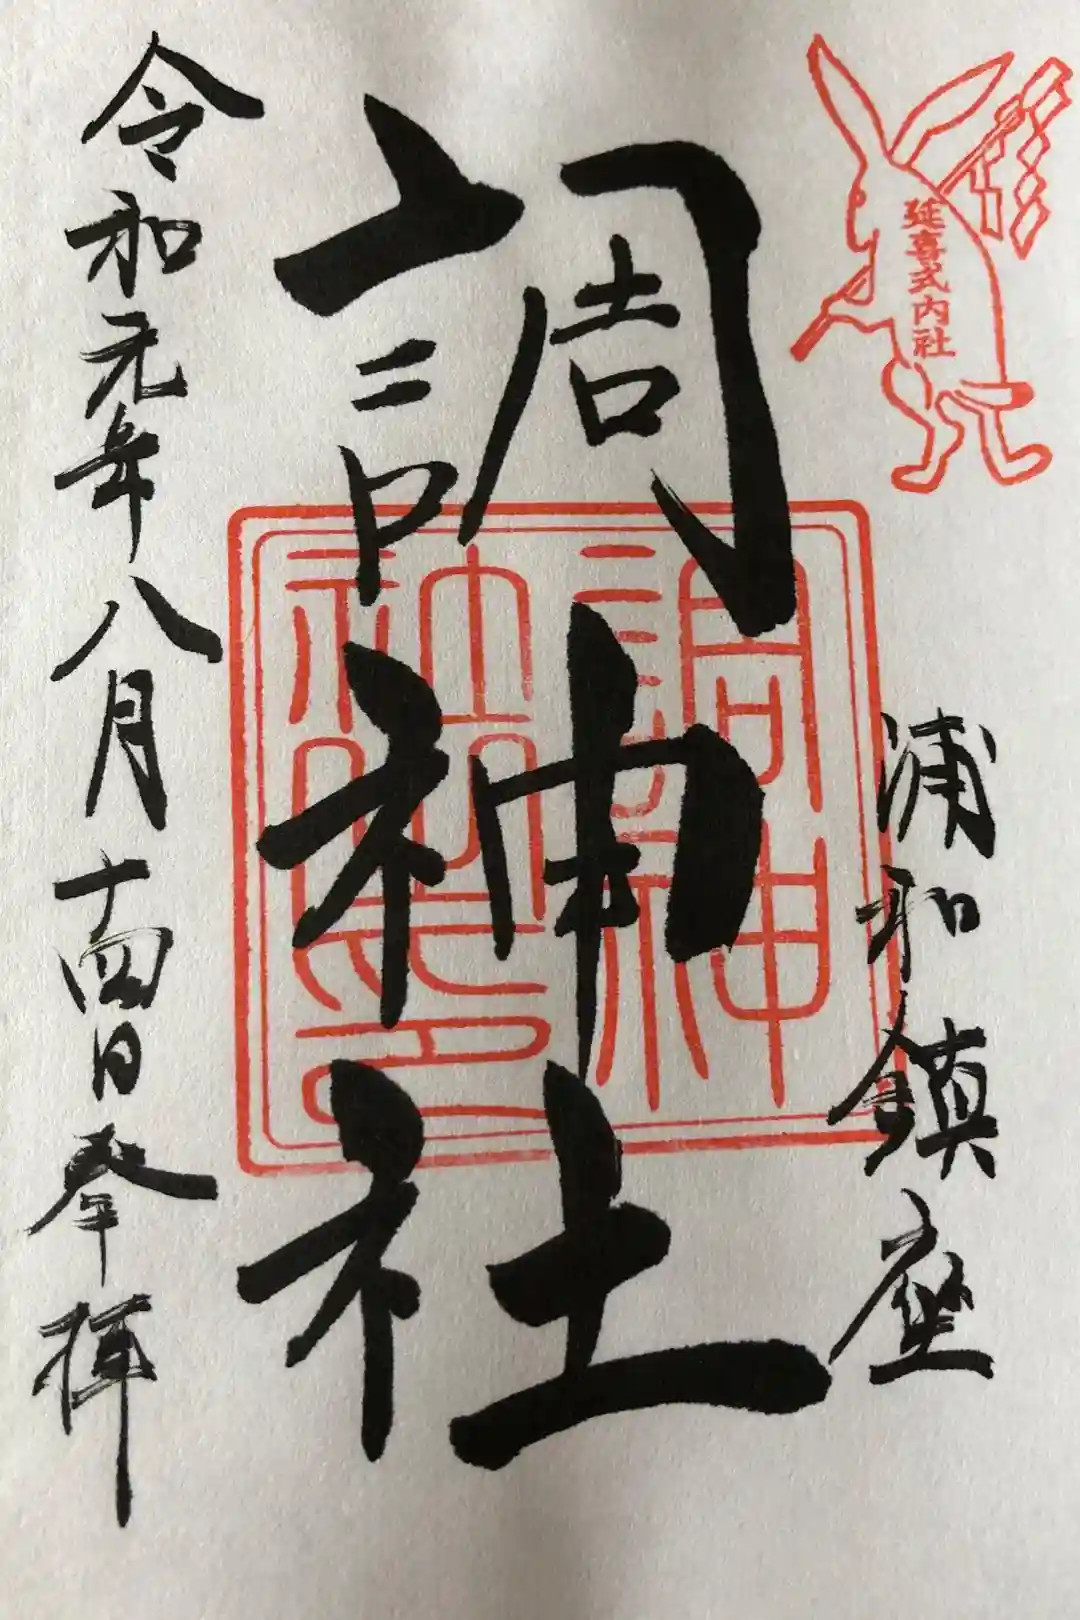 延喜式内社
浦和鎮座
調神社
調神社之印
令和元年八月十四日奉拝